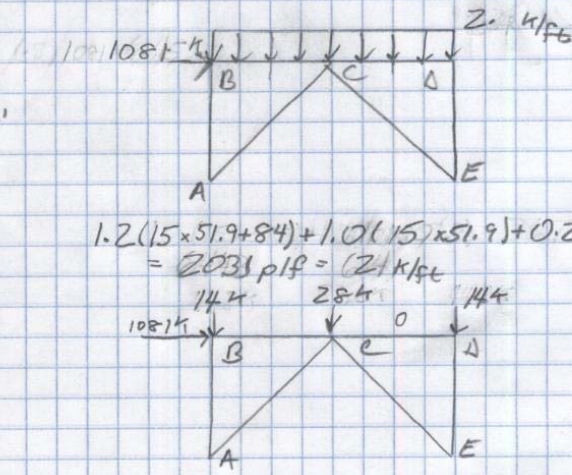 2. k/ft
1081 k
B C D
A E
1.2(15×51.9+84)+1.0(15×51.9)+0.2
= 2031 plf = 2 k/ft
14k 28k 14k
1081k 0
B C D
A E